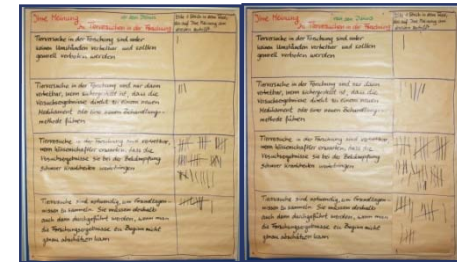 Ihre Meinung vor dem Besuch
zu Tierversuchen in der Forschung
Tierversuche in der Forschung sind unter
keinen Umständen vertretbar und sollten
generell verboten werden
Tierversuche in der Forschung sind nur dann
vertretbar, wenn sichergestellt ist, dass die
Versuchsergebnisse direkt zu einem neuen
Medikament oder einer neuen Behandlungs-
methode führen
Tierversuche in der Forschung sind vertretbar,
wenn Wissenschaftler erwarten, dass die
Versuchsergebnisse sie bei der Bekämpfung
schwerer Krankheiten
Tierversuche sind notwendig, um Grundlagen-
wissen zu sammeln. Sie müssen deshalb
auch dann durchgeführt werden, wenn man
die Forschungsergebnisse zu Beginn nicht
genau abschätzen kann
Ihre Meinung nach dem Besuch
zu Tierversuchen in der Forschung
Tierversuche in der Forschung sind unter
keinen Umständen vertretbar und sollten
generell verboten werden
Tierversuche in der Forschung sind nur dann
vertretbar, wenn sichergestellt ist, dass die
Versuchsergebnisse direkt zu einem neuen
Medikament oder einer neuen Behandlungs-
methode führen
Tierversuche in der Forschung sind vertretbar,
wenn Wissenschaftler erwarten, dass die
Versuchsergebnisse sie bei der Bekämpfung
schwerer Krankheiten
Tierversuche sind notwendig, um Grundlagen-
wissen zu sammeln. Sie müssen deshalb
auch dann durchgeführt werden, wenn man
die Forschungsergebnisse zu Beginn nicht
genau abschätzen kann